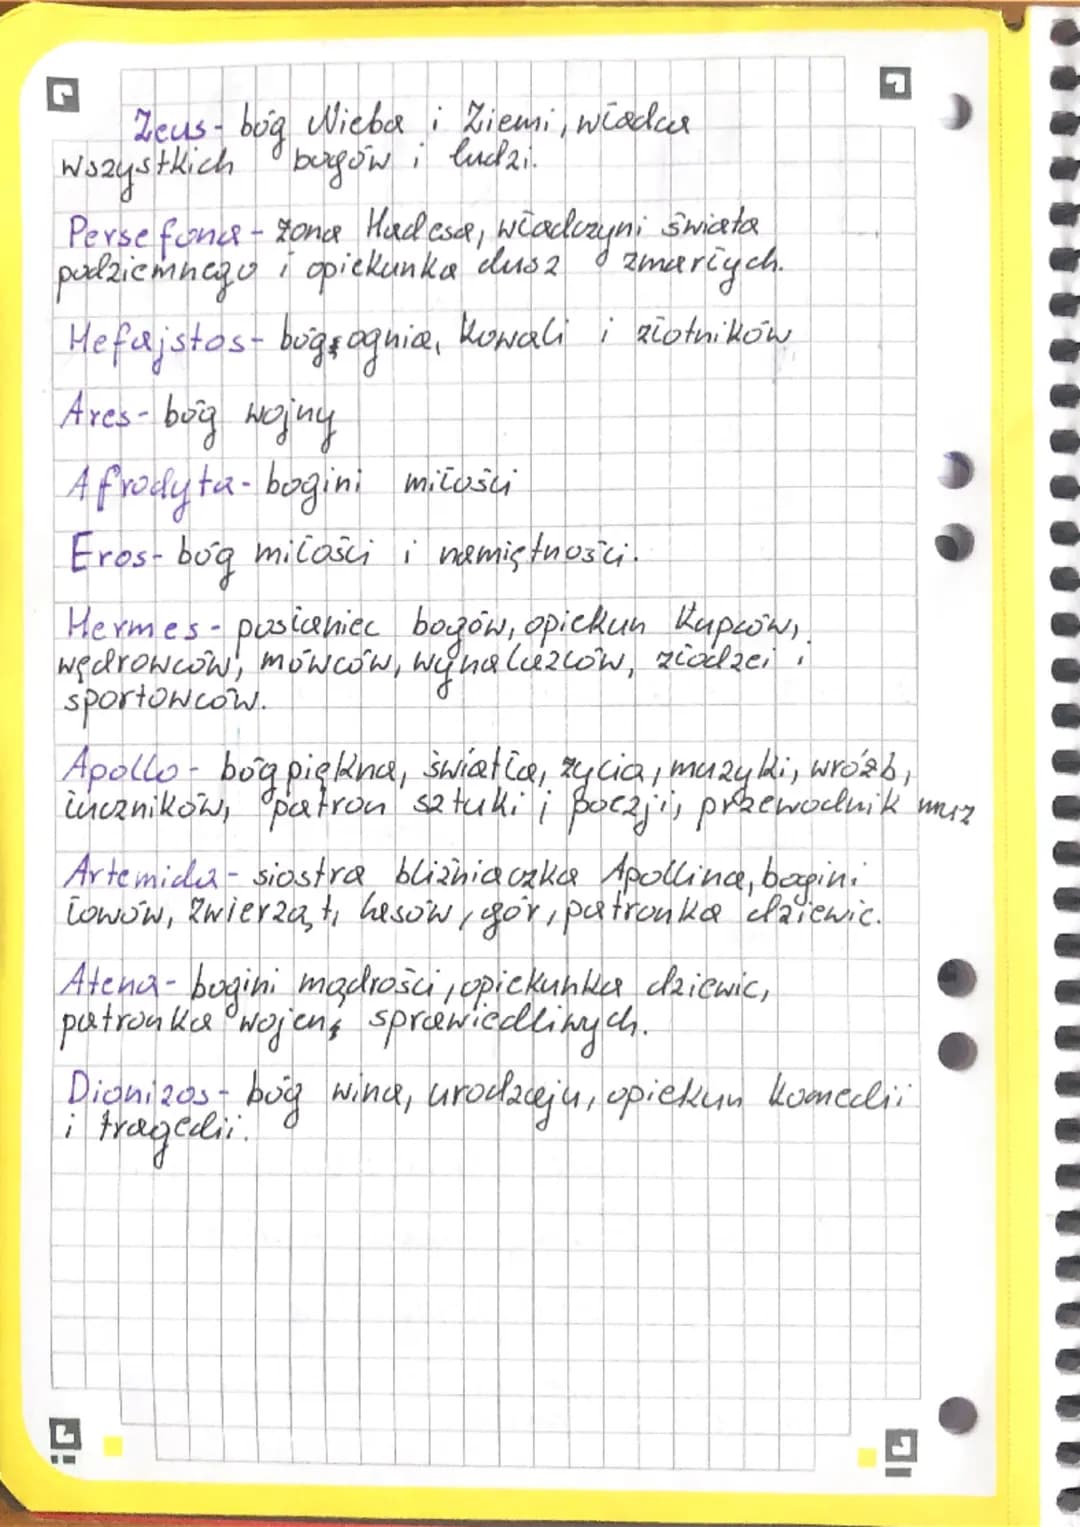 Zeus- bóg Nieba i Ziemi, władca
wszystkich bogów i ludzi.
Persefona - żona Hadesa, władczyni świata
podziemnego i opiekunka dusz zmarłych.
Hefajstos- bóg ognia, kowali i złotników
Ares- bóg wojny
Afrodyta- bogini miłości
Eros- bóg miłości i namiętności.
Hermes - posłaniec bogów, opiekun kupców,
wędrowców, mówców, wynalazców, złodzei i
sportowców.
Apollo - bóg piękna, światła, życia, muzyki, wróżb,
łuczników, patron sztuki i poezji, przewodnik muz
Artemida - siostra bliźniaczka Apollina, bogini
łowów, zwierząt, lasów, gór, patronka dziewic.
Atena - bogini mądrości, opiekunka dziewic,
patronka wojen sprawiedliwych.
Dionizos - bóg wina, urodzaju, opiekun komedii
i tragedii.